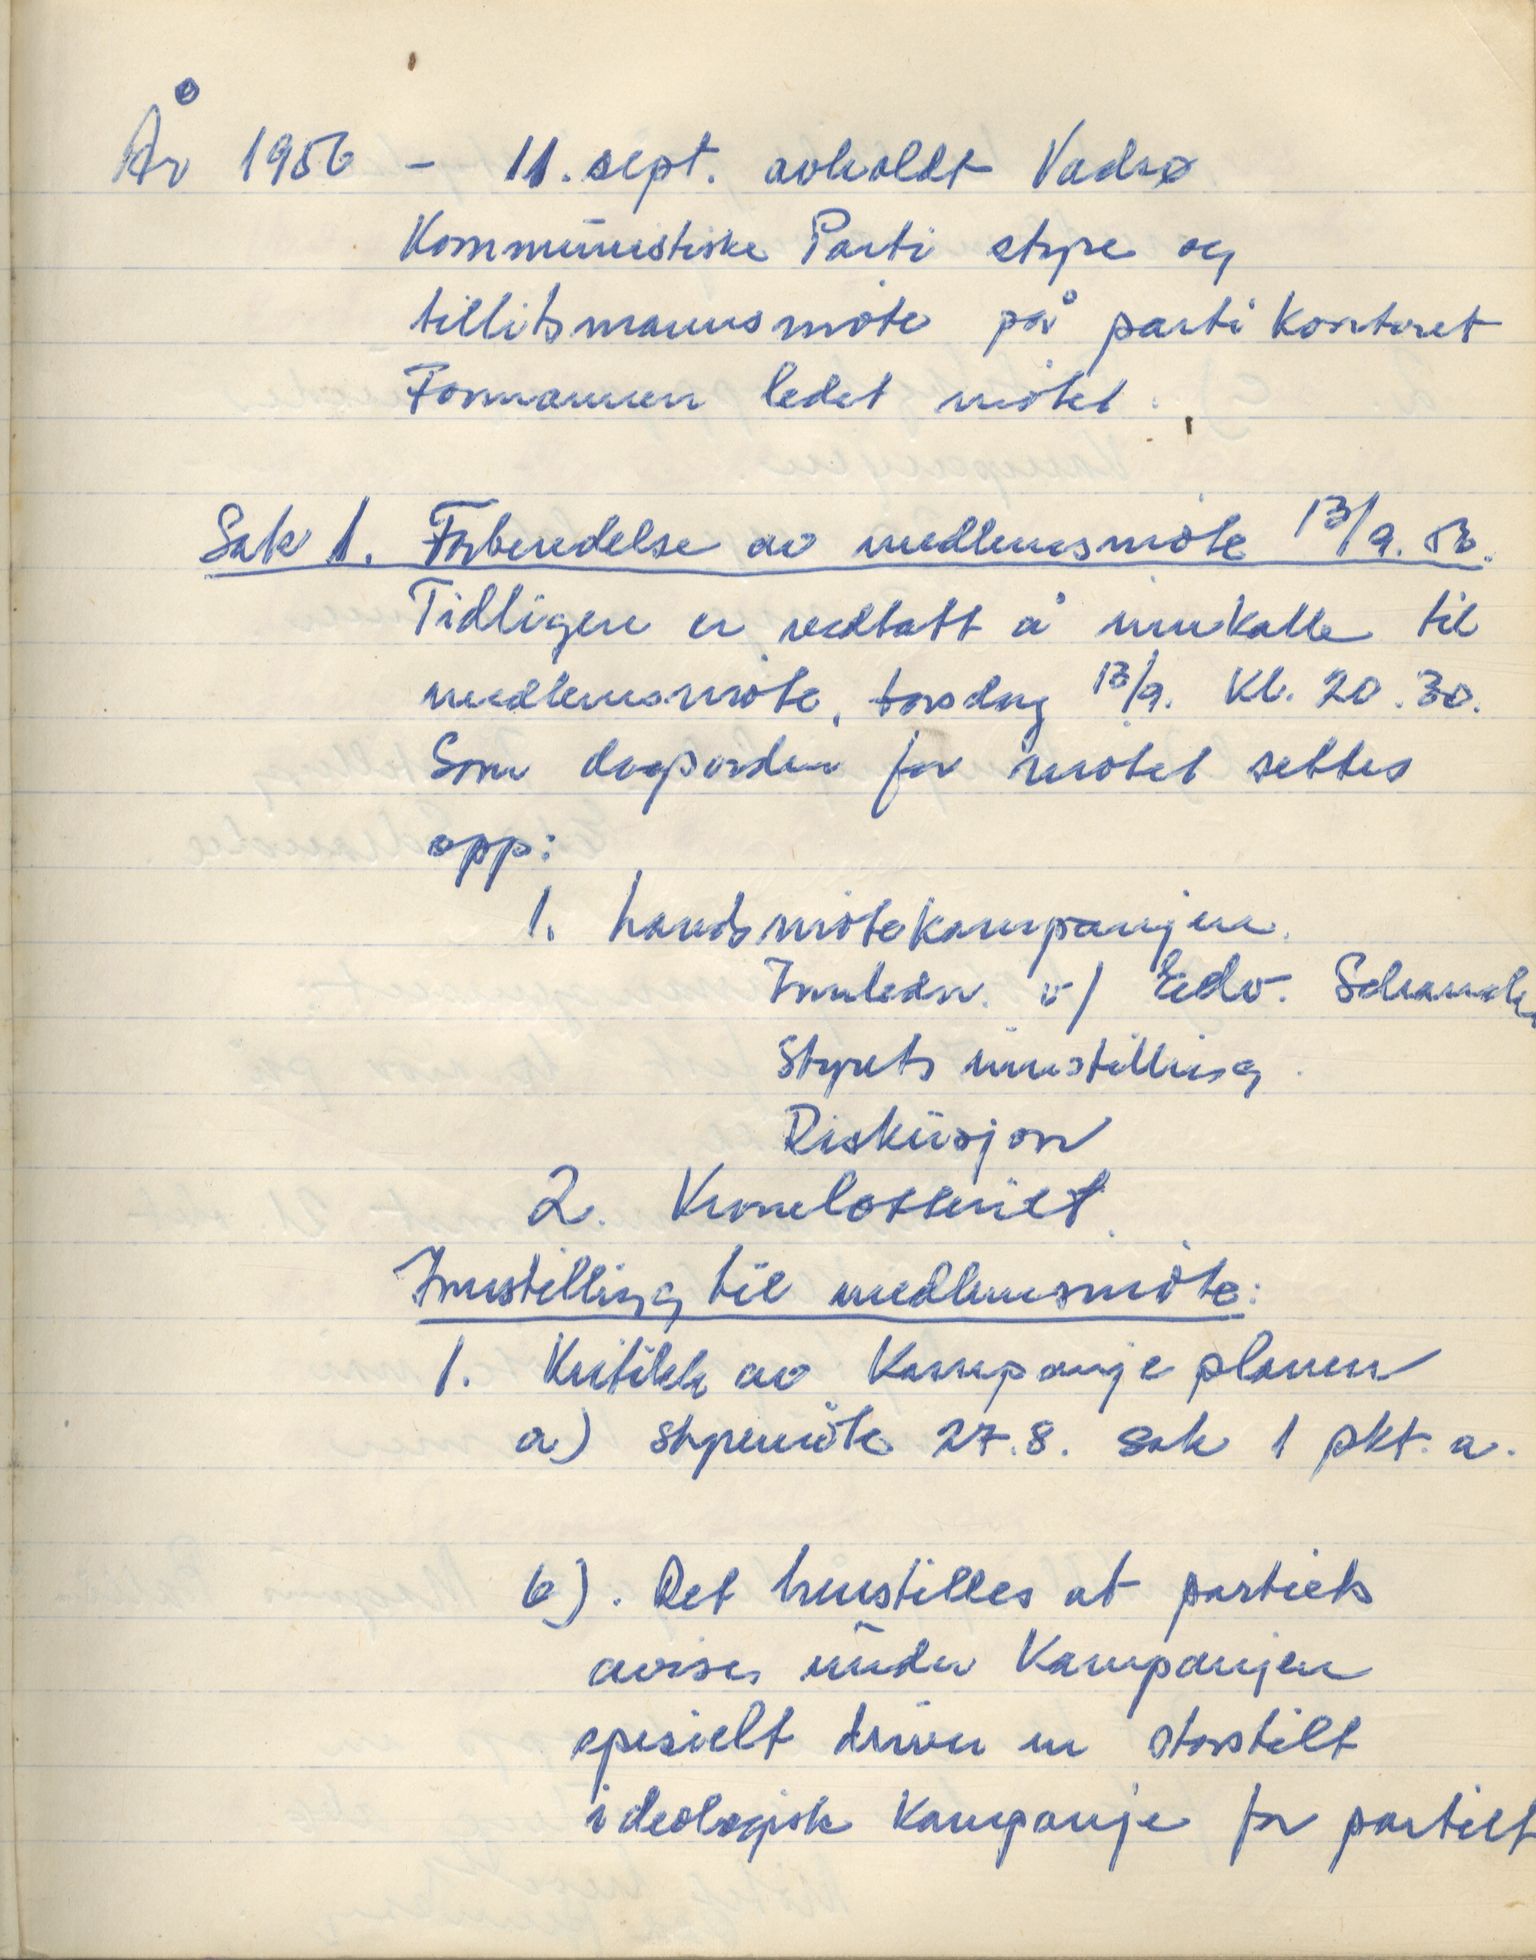 År 1956 - 11. sept. avholdt Vadsø
Kommunistiske Parti styre og
tillitsmannsmöte på partikontoret
Formannen ledet mötet.
Sak 1. Forberedelse av medlemsmöte 13/9. 56.
Tidligere er vedtatt å innkalle til
medlemsmöte, torsdag 13/9. kl. 20.30.
Som dagsorden for mötet settes
opp:
1. Landsmötekampanjen.
Innledn. v/ Edv.
Styrets innstilling.
Diskusjon
2. Kronelotteriet.
Innstilling til medlemsmöte:
1. Kritikk av Kampanjeplanen
a) styremöte 27.8. sak 1 pkt. a.
b). Det henstilles at partiets
aviser under Kampanjen
spesielt driver en storstilt
ideologisk kampanje for partiet